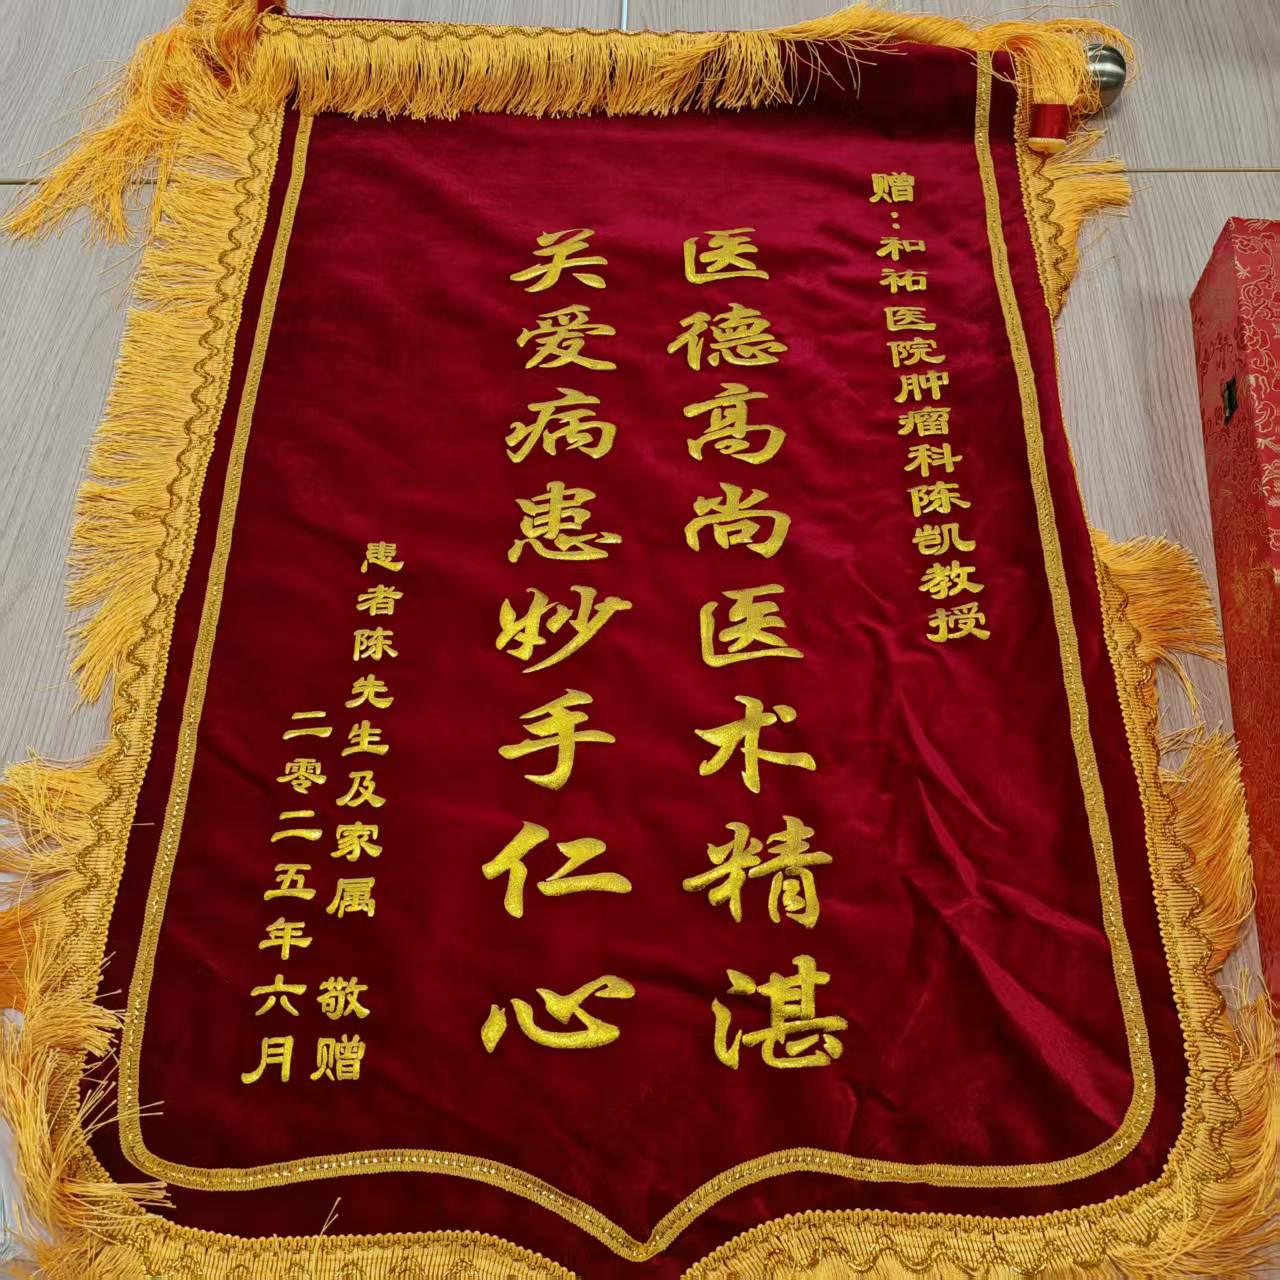 赠：和祐医院肿瘤科陈凯教授
医德高尚医术精湛
关爱病患妙手仁心
患者陈先生及家属 敬赠
二零二五年六月